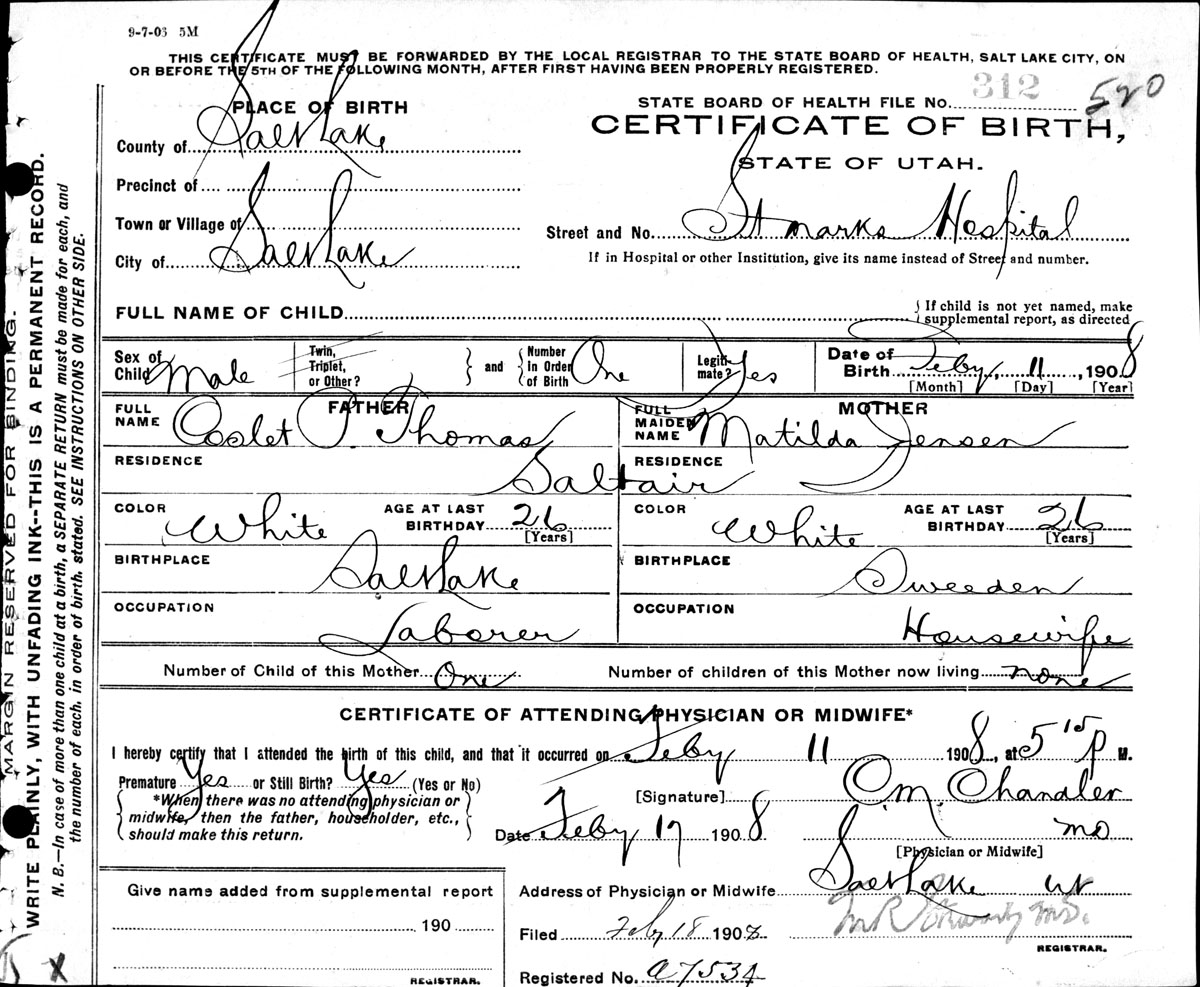 9-7-06 5M
THIS CERTIFICATE MUST BE FORWARDED BY THE LOCAL REGISTRAR TO THE STATE BOARD OF HEALTH, SALT LAKE CITY, ON
OR BEFORE THE 5TH OF THE FOLLOWING MONTH, AFTER FIRST HAVING BEEN PROPERLY REGISTERED.
STATE BOARD OF HEALTH FILE No. 312 520
CERTIFICATE OF BIRTH,
STATE OF UTAH.
PLACE OF BIRTH
County of Salt Lake
Precinct of
Town or Village of
City of Salt Lake
Street and No. St marks Hospital
If in Hospital or other Institution, give its name instead of Street and number.
FULL NAME OF CHILD
If child is not yet named, make
supplemental report, as directed
Sex of Child Male
Twin, Triplet, or Other?
and
Number In Order of Birth One
Legiti- mate? Yes
Date of Birth Feby, 11, 1908
[Month] [Day] [Year]
FATHER
FULL NAME Coslet P. Thomas
MOTHER
FULL MAIDEN NAME Matilda Jensen
RESIDENCE Saltair RESIDENCE
COLOR White AGE AT LAST BIRTHDAY 26 [Years]
COLOR White AGE AT LAST BIRTHDAY 26 [Years]
BIRTHPLACE Salt Lake
BIRTHPLACE Sweeden
OCCUPATION Laborer
OCCUPATION Housewife
Number of Child of this Mother One
Number of children of this Mother now living none
CERTIFICATE OF ATTENDING PHYSICIAN OR MIDWIFE*
I hereby certify that I attended the birth of this child, and that it occurred on Feby 11 1908, at 5 15 P M.
Premature Yes or Still Birth? Yes (Yes or No)
*When there was no attending physician or
midwife, then the father, householder, etc.,
should make this return.
[Signature] O.M. Chandler
Date Feby 17 1908 MD
[Physician or Midwife]
Address of Physician or Midwife Salt Lake ut
Filed Feby 18 1908
REGISTRAR.
Registered No. a7534
Give name added from supplemental report
190
REGISTRAR.
MARGIN RESERVED FOR BINDING.
WRITE PLAINLY, WITH UNFADING INK--THIS IS A PERMANENT RECORD.
N. B.—In case of more than one child at a birth, a SEPARATE RETURN must be made for each, and
the number of each. in order of birth. stated. SEE INSTRUCTIONS ON OTHER SIDE.
X